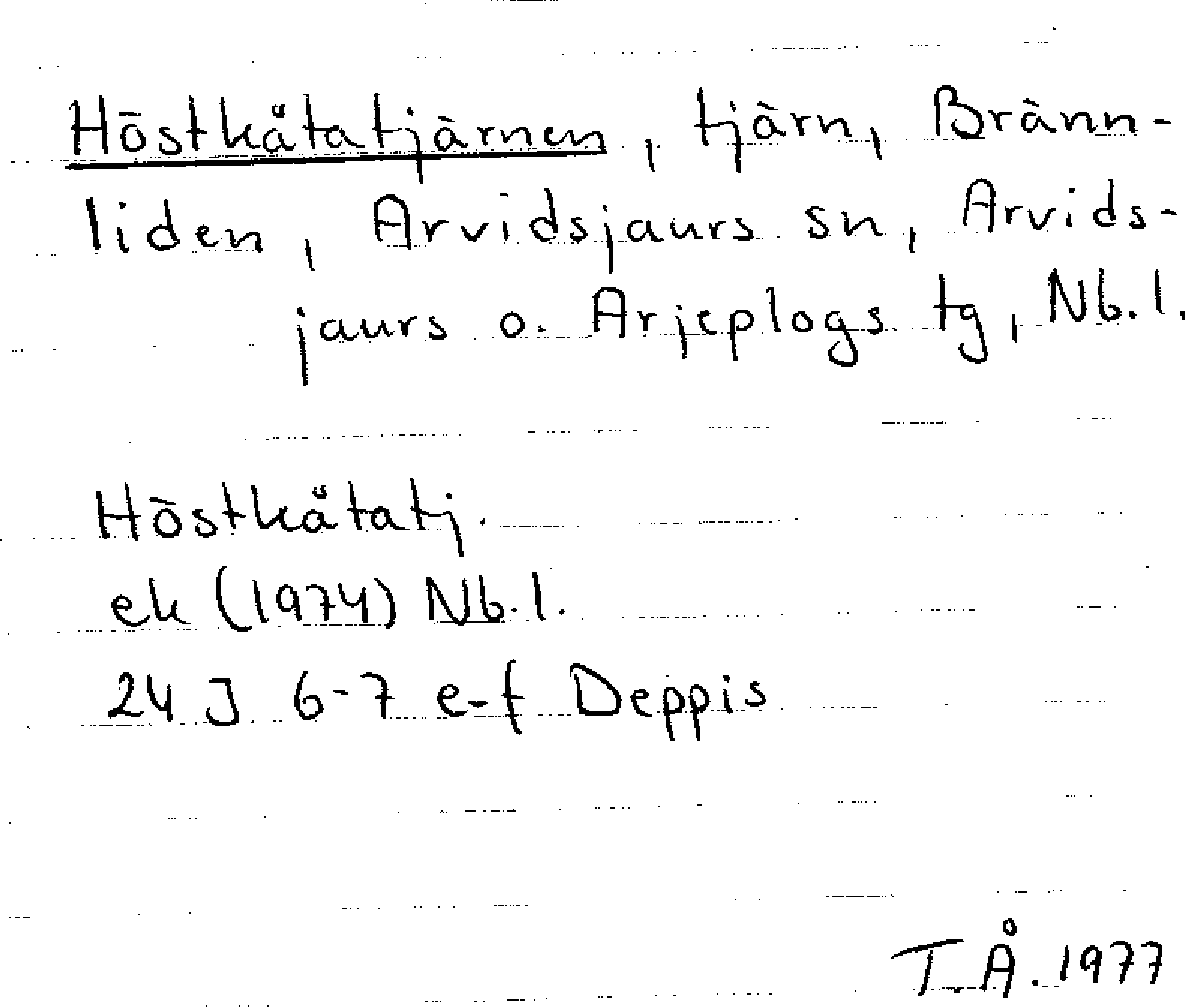 Höstkåtatjärnen, tjärn, Bränn-
liden, Arvidsjaurs sn, Arvids-
jaurs o. Arjeplogs tg, Nb.l.
Höstkåtatj.
ek (1974) Nb.l.
24 J 6-7 e-f Deppis
T.Å. 1977